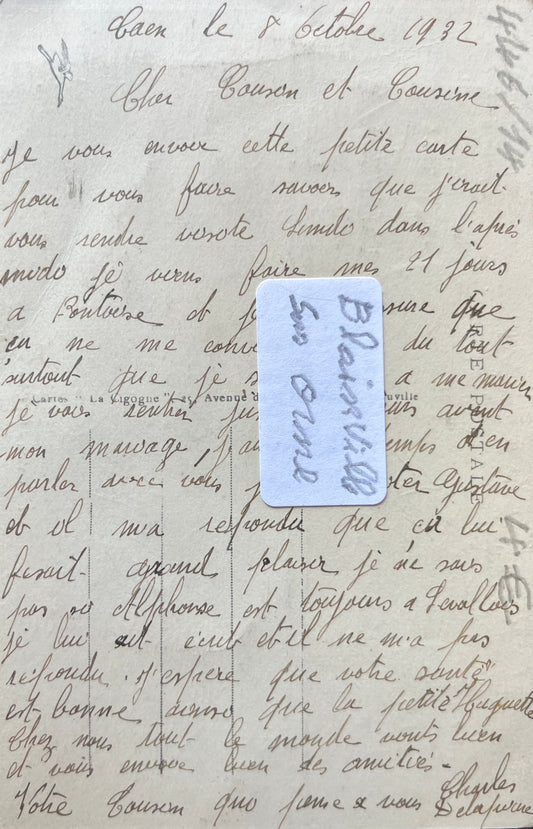 Caen le 8 Octobre 1932
Cher Cousin et Cousine
Je vous envoie cette petite carte
pour vous faire savoir que j'irait
vous rendre visite Lundi dans l'après
midi je viens faire mes 21 jours
a Pontoise et je assure que
ça ne me du tout
surtout que je a me marier
je vais rentrer avant
mon mariage, j'ai temps d'en
parler avec vous Gustave
et il m'a repondu que ça lui
fesait grand plaisir je ne sais
pas si Alphonse est toujours a Levallois
je lui ait écrit et il ne m'a pas
repondu. j'espere que votre santé
est bonne ainsi que la petite Huguette
Chez nous tout le monde vont bien
et vous envoie bien des amitiés-
Votre Cousin qui pense a vous Charles
Cartes "La Cigogne" Avenue d uville
E POSTALE
Blainville
sur Orne
446/14
4€